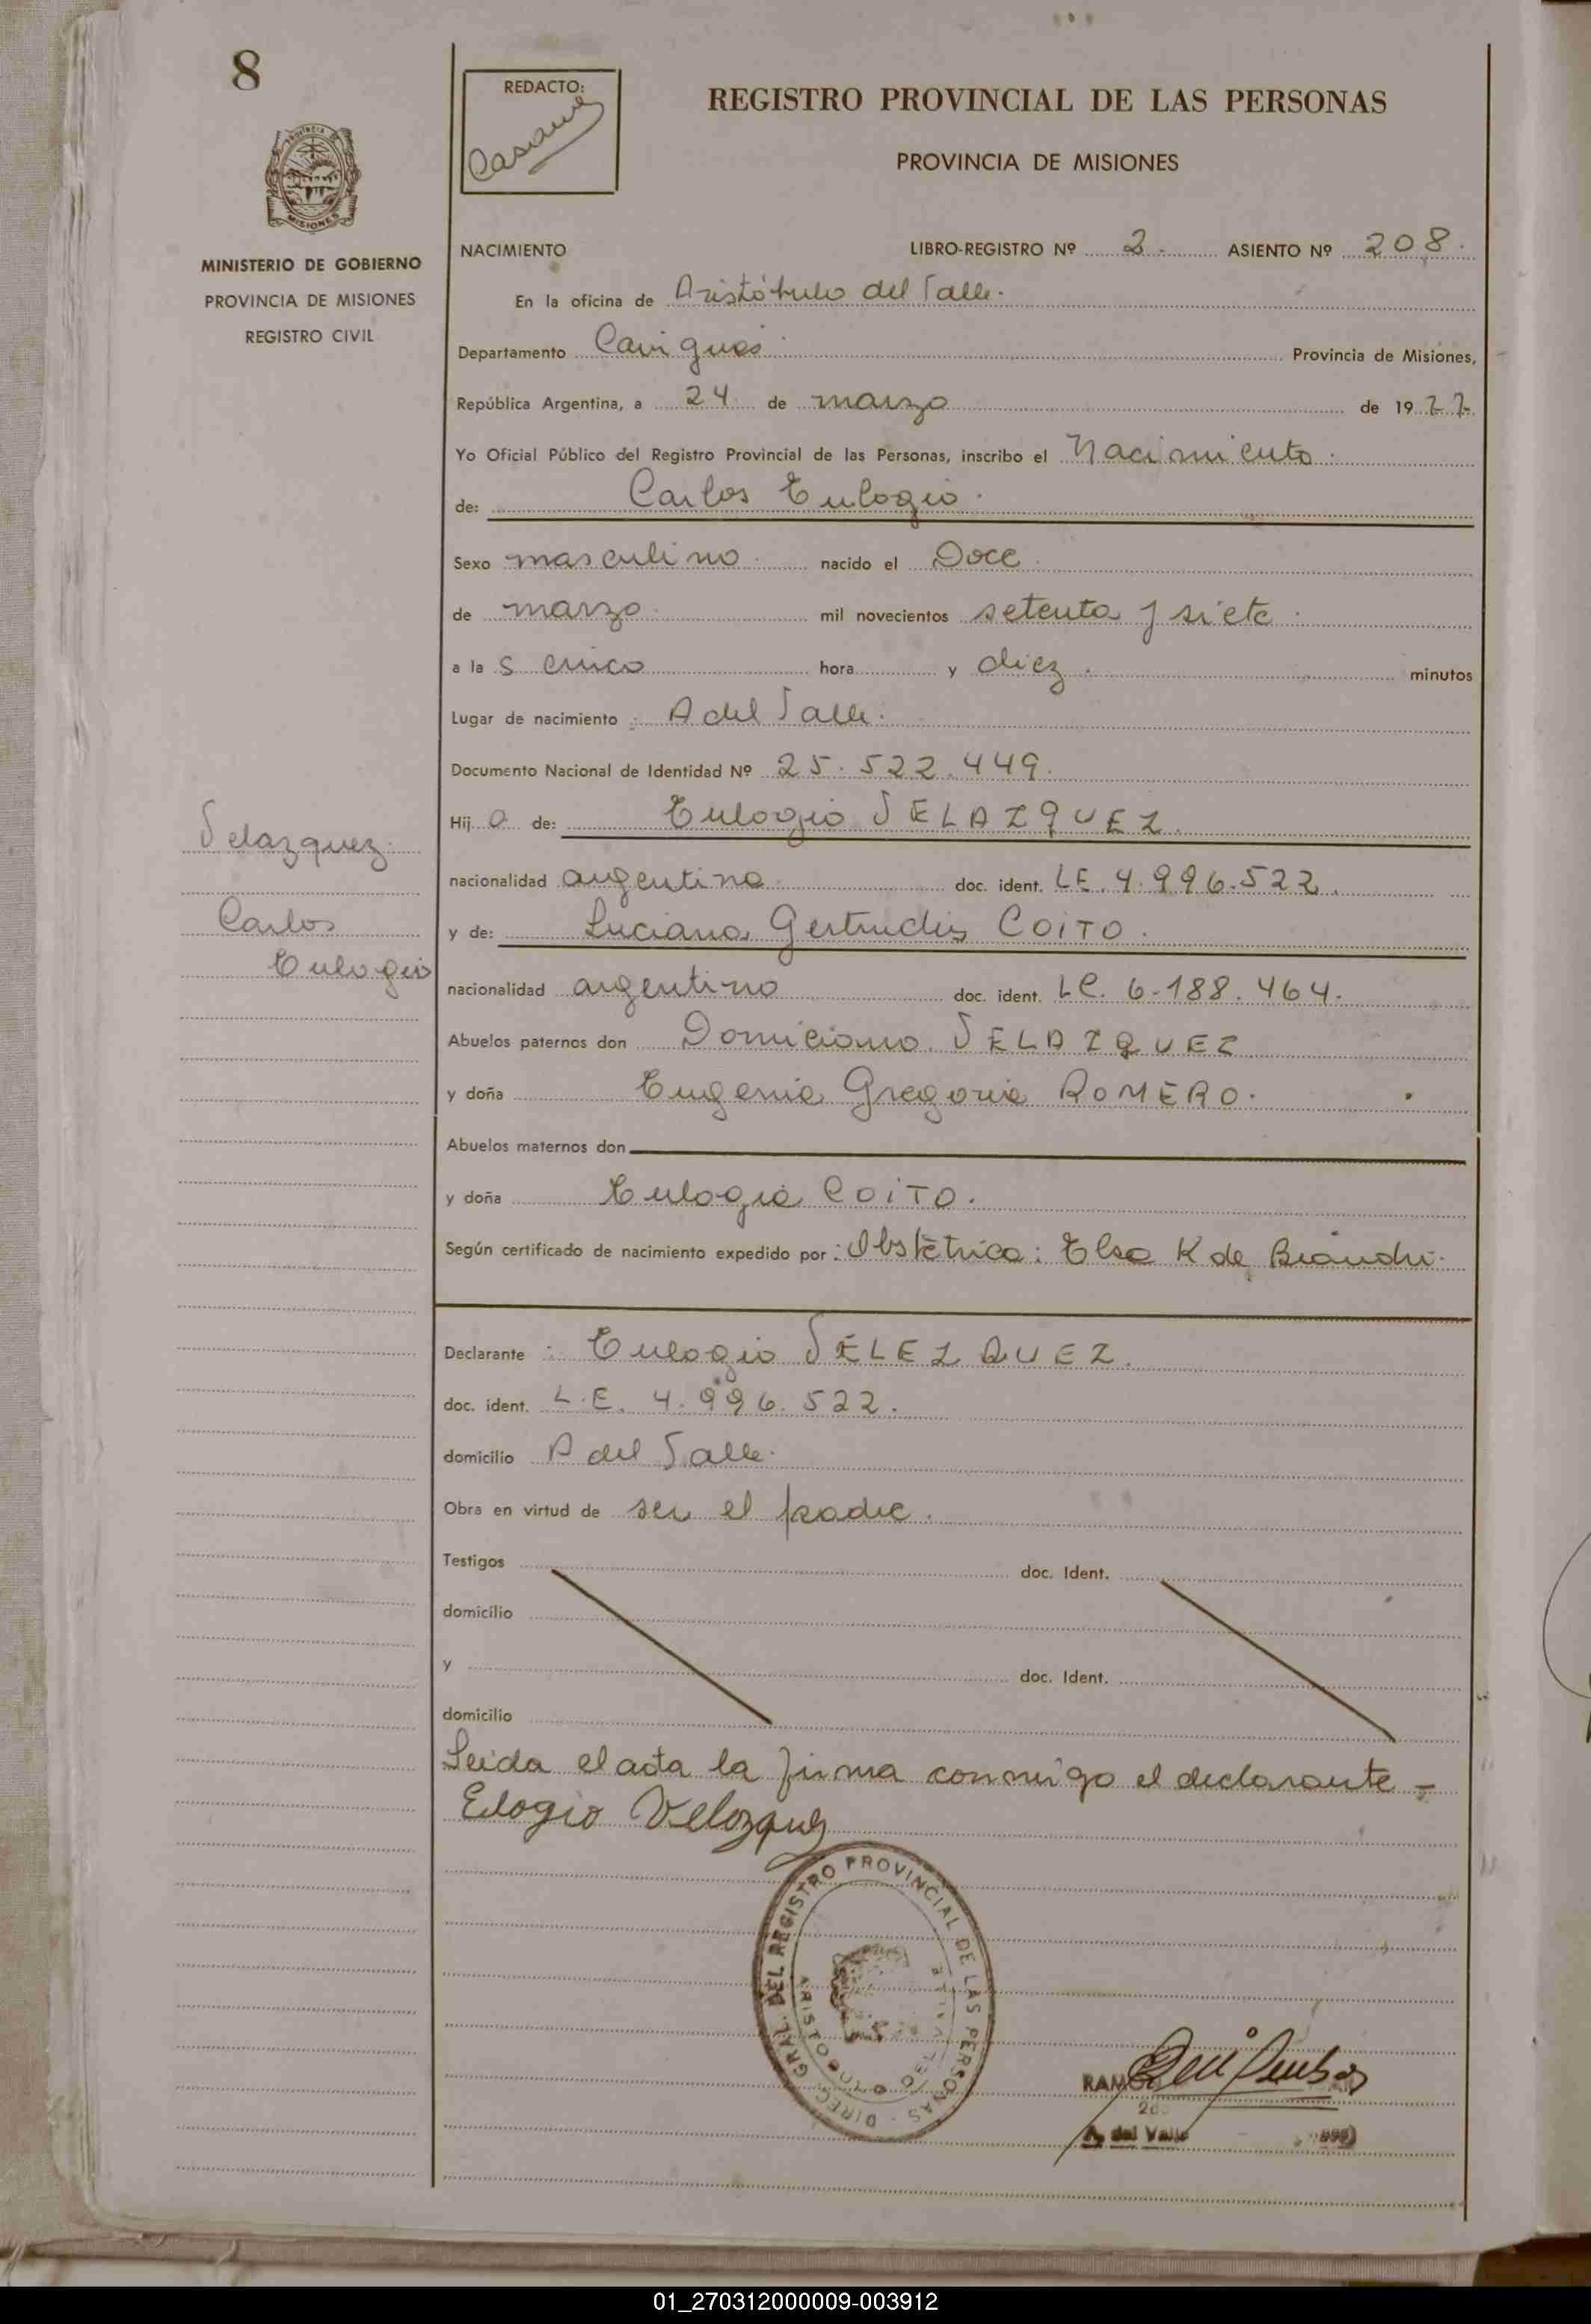 8
REDACTO:
REGISTRO PROVINCIAL DE LAS PERSONAS
PROVINCIA DE MISIONES
PROVINCIA DE
MISIONES
MINISTERIO DE GOBIERNO
PROVINCIA DE MISIONES
REGISTRO CIVIL
NACIMIENTO LIBRO-REGISTRO Nº 2. ASIENTO Nº 208.
En la oficina de Aristóbulo del Valle.
Departamento Cainguas Provincia de Misiones,
República Argentina, a 24 de marzo de 1977.
Yo Oficial Público del Registro Provincial de las Personas, inscribo el Nacimiento.
de: Carlos Eulogio.
Sexo masculino. nacido el Doce.
de marzo. mil novecientos setenta y siete.
a la s cinco hora y diez. minutos
Lugar de nacimiento: A del Valle.
Documento Nacional de Identidad Nº 25.522.449.
Hij o de: Eulogio VELAZQUEZ.
nacionalidad argentina doc. ident. LE. 4.996.522.
y de: Luciana Gertrudis COITO.
nacionalidad argentino doc. ident. LC. 6.188.464.
Abuelos paternos don Domiciano VELAZQUEZ
y doña Eugenia Gregoria ROMERO.
Abuelos maternos don
y doña Eulogia COITO.
Según certificado de nacimiento expedido por: Obstètrica: Elsa K de Bianchi.
Velazquez
Carlos
Eulogio
Declarante: Eulogio VELEZQUEZ.
doc. ident. L.E. 4.996.522.
domicilio A del Valle.
Obra en virtud de ser el padre.
Testigos doc. Ident.
domicilio
y doc. Ident.
domicilio
Leida el acta la firma conmigo el declarante -
Elogio Velozquez
DIREC. GRAL. DEL REGISTRO PROVINCIAL DE LAS PERSONAS
ARISTOBULO DEL VALLE
A. del Valle
01_270312000009-003912